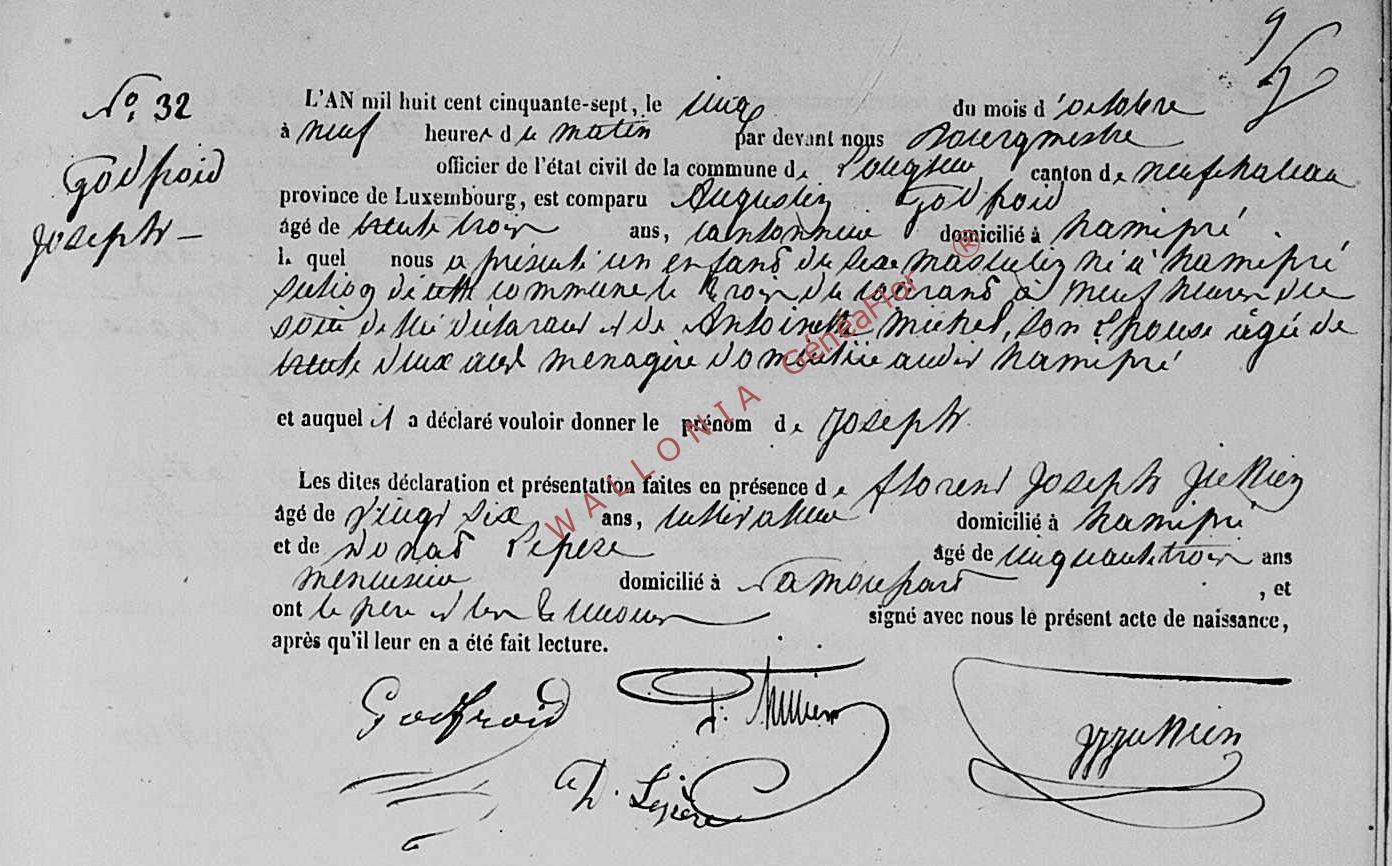 9
No. 32
Godfroid
Joseph —
L'AN mil huit cent cinquante-sept, le cinq du mois d'octobre
à neuf heures du matin par devant nous Bourgmestre
officier de l'état civil de la commune de Longlier, canton de neufchateau
province de Luxembourg, est comparu Augustin Godfroid
âgé de trente trois ans, cantonnier domicilié à hamipré.
le quel nous a présenté un enfant du sexe masculin né à hamipré
section de cette commune le trois du courant à neuf heures du
soir de lui déclarant et de Antoinette Michel, son épouse agée de
trente deux ans ménagère domiciliée audit hamipré
et auquel il a déclaré vouloir donner le prénom de Joseph
Les dites déclaration et présentation faites en présence de florent Joseph
âgé de vingt six ans, cultivateur domicilié à hamipré
et de Donat Lepere âgé de cinquante trois ans
menuisier domicilié à Namoussart, et
ont le père et les témoins signé avec nous le présent acte de naissance,
après qu'il leur en a été fait lecture.
Godfroid
D. Lepere
WALLONIA GénéaFlor ®